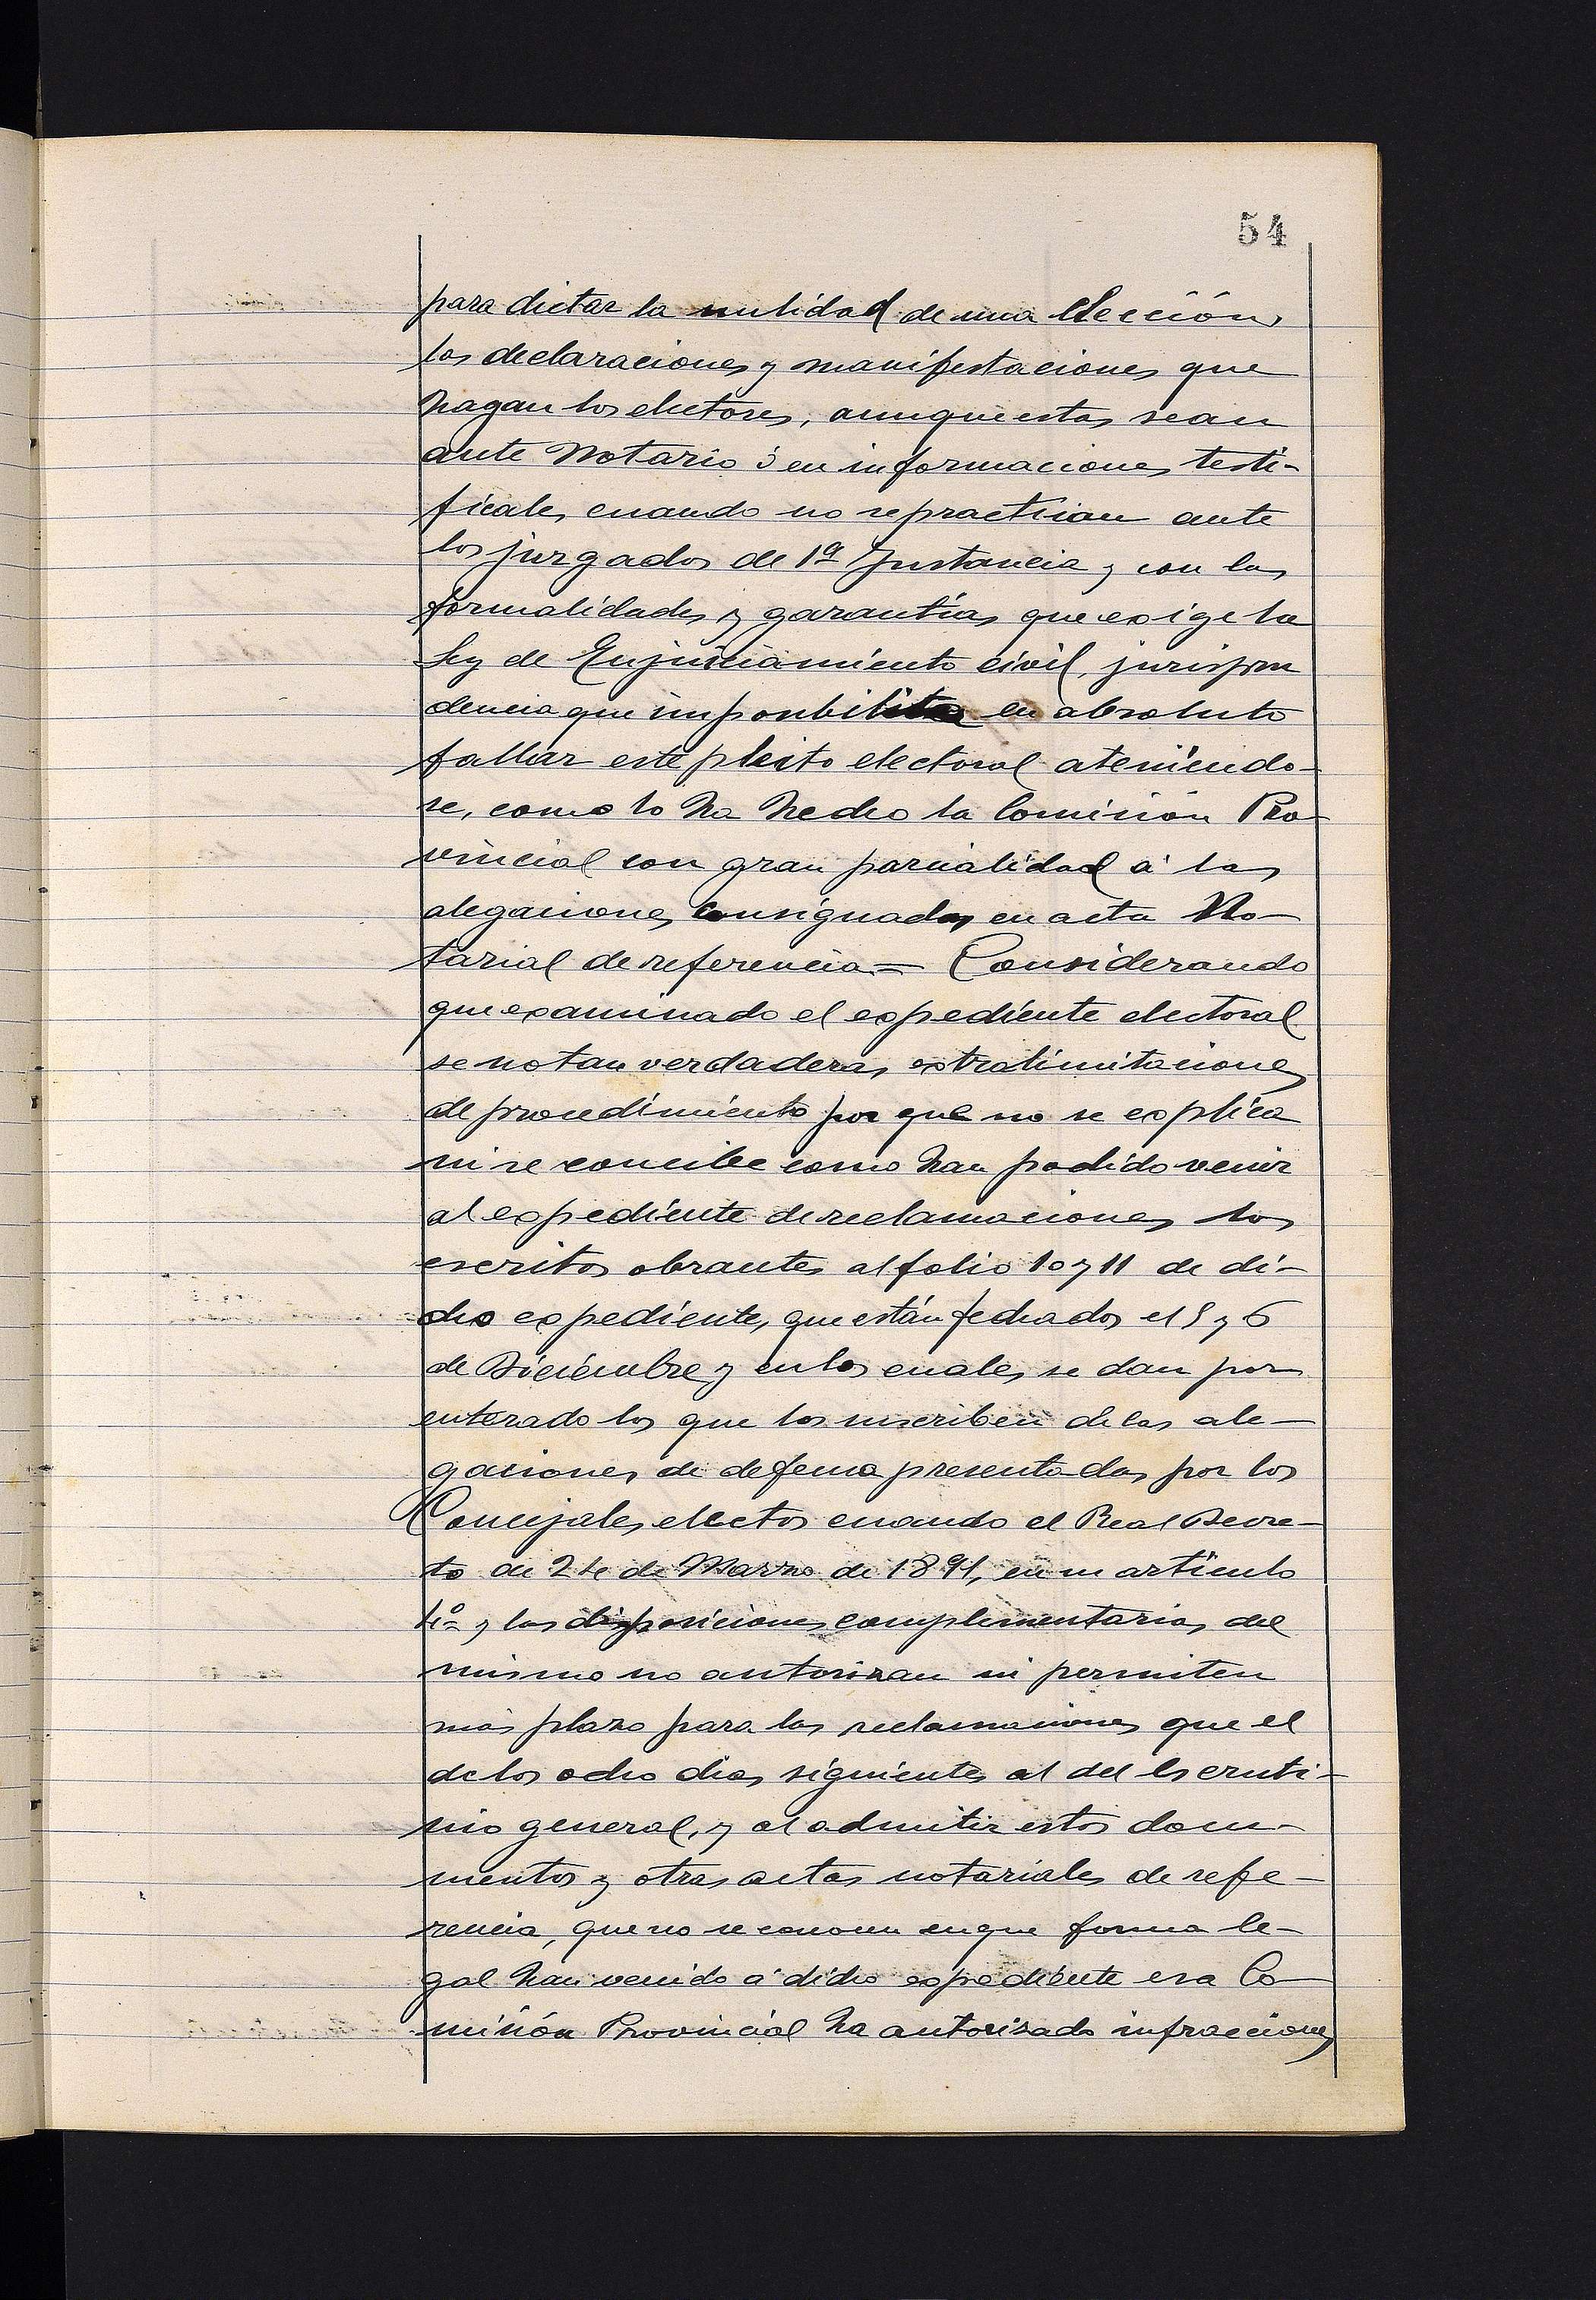 54
para dictar la nulidad de una elección
las declaraciones y manifestaciones que
hagan los electores, aunque estas sean
ante Notario ó en informaciones testi-
ficales, cuando no se practican ante
los juzgados de 1ª Instancia y con las
formalidades y garantías que exige la
Ley de Enjuiciamiento civil, jurispru
dencia que imposibilita en absoluto
fallar este pleito electoral ateniéndo-
se, como lo ha hecho la Comisión Pro-
vincial con gran parcialidad á las
alegaciones consignadas en acta No-
tarial de referencia = Considerando
que examinado el expediente electoral
se notan verdaderas extralimitaciones
de procedimiento por que no se explica
ni se concibe como han podido venir
al expediente de reclamaciones los
escritos obrantes al folio 10 y 11 de di-
cho expediente, que están fechados el 5 y 6
de Diciembre y en los cuales se dan por
enterado los que los suscriben de las ale-
gaciones de defensa presentadas por los
Concejales electos cuando el Real Decre-
to de 24 de Marzo de 1891, en su artículo
4º y las disposiciones complementarias del
mismo no autorizan ni permiten
más plazo para las reclamaciones que el
de los ocho dias siguientes al del Escruti-
nio general, y al admitir estos docu-
mentos y otras actas notariales de refe-
rencia, que no se conocen en que forma le-
gal han venido á dicho expediente esa Co-
misión Provincial ha autorizado infracciones